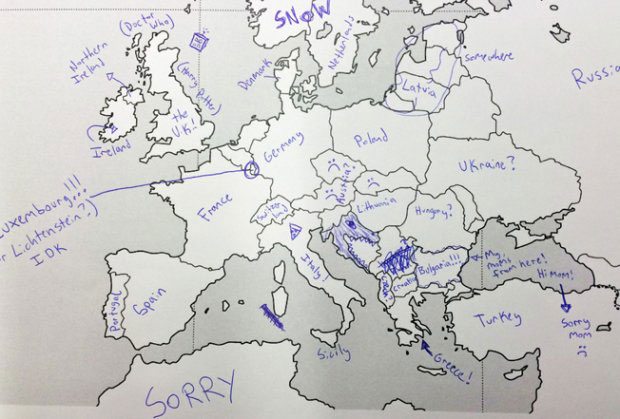 SNOW
(Doctor
Who)
Northern
Ireland
(Harry Potter)
the
U.K.!
Ireland
Denmark
Netherlands
somewhere
Latvia
Russia
Germany
Poland
Ukraine?
Luxembourg!!!
or Lichtenstein?)
IDK
France
Austria?
Lithuania
Hungary?
Italy!
Bulgaria!!!
My mom's
from here!
Hi Mom!
Croatia
Portugal
Spain
Turkey
Sorry
mom
Sicily
Greece!
SORRY